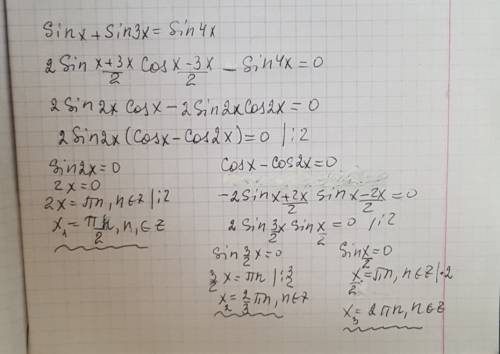 Sinx + Sin3x = Sin4x
2 Sin (x+3x)/2 Cos (x-3x)/2 - Sin4x = 0
2 Sin 2x Cosx - 2Sin2x Cos2x = 0
2 Sin2x (Cosx - Cos2x) = 0 | :2
Sin2x = 0
2x = 0
2x = πn, n∈Z | :2
x₁ = πn/2, n, ∈ Z
Cosx - Cos2x = 0
-2Sin (x+2x)/2 Sin (x-2x)/2 = 0
2 Sin 3/2 x Sin x/2 = 0 / :2
Sin 3/2 x = 0
3/2 x = πn | : 3/2
x₂ = 2/3 πn, n∈Z
Sin x/2 = 0
x/2 = πn, n∈Z | ·2
x₃ = 2πn, n∈Z